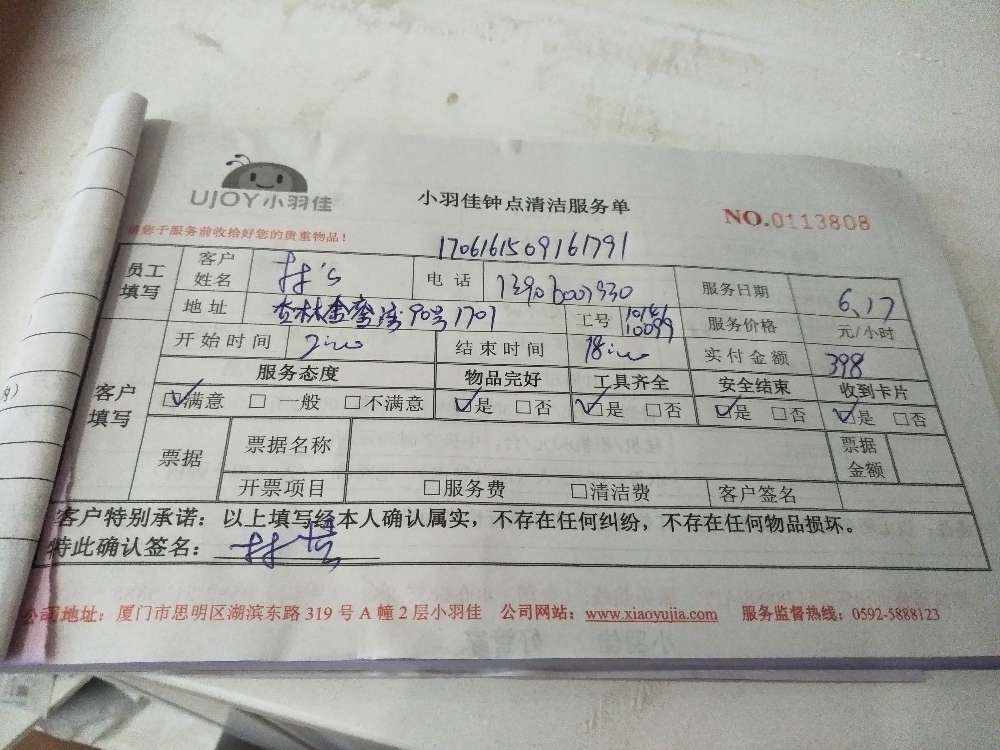 UJOY小羽佳
小羽佳钟点清洁服务单
NO.0113808
请您于服务前收给好您的贵重物品！
1706161509161791
员工填写 客户姓名 林's 电话 服务日期 6.17
地址 90号1701 工号 10099 服务价格 元/小时
开始时间 结束时间 18:00 实付金额 398
客户填写 服务态度 物品完好 工具齐全 安全结束 收到卡片
☑满意 □一般 □不满意 ☑是 □否 ☑是 □否 ☑是 □否 ☑是 □否
票据 票据名称 票据金额
开票项目 □服务费 □清洁费 客户签名
客户特别承诺：以上填写经本人确认属实，不存在任何纠纷，不存在任何物品损坏。
特此确认签名：
公司地址：厦门市思明区湖滨东路319号A幢2层小羽佳 公司网站：www.xiaoyujia.com 服务监督热线：0592-5888123